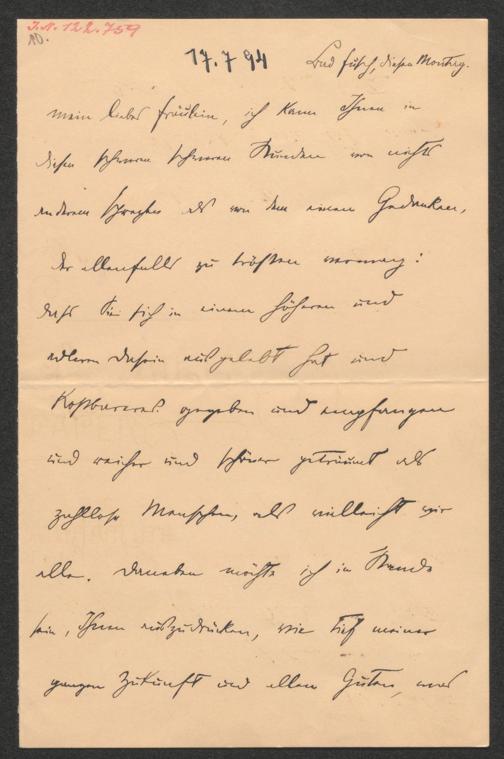 I.N. 122.759
10.
17.7 94
Bad Fusch, diesen Montag.
mein liebes Fräulein, ich kann Ihnen in
diesen schweren schweren Stunden von nichts
anderem sprechen als von dem einen Gedanken,
der allenfalls zu trösten vermag:
dass Sie sich in einem höheren und
edleren Dasein ausgelebt hat und
Kostbareres gegeben und empfangen
und reicher und schöner geträumt als
zahllose Menschen, als vielleicht wir
alle. Daneben möchte ich im Stande
sein, Ihnen auszudrücken, wie tief meiner
ganzen Zukunft und allem Guten, was